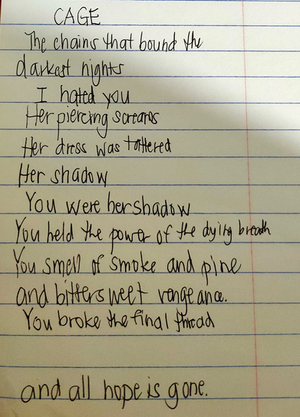 CAGE
The chains that bound the
darkest nights
I hated you
Her piercing screams
Her dress was tattered
Her shadow
You were her shadow
You held the power of the dying breath
You smell of smoke and pine
and bittersweet vengeance.
You broke the final thread
and all hope is gone.